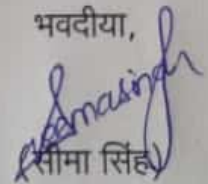 भवदीया,
Seemasingh
(सीमा सिंह)